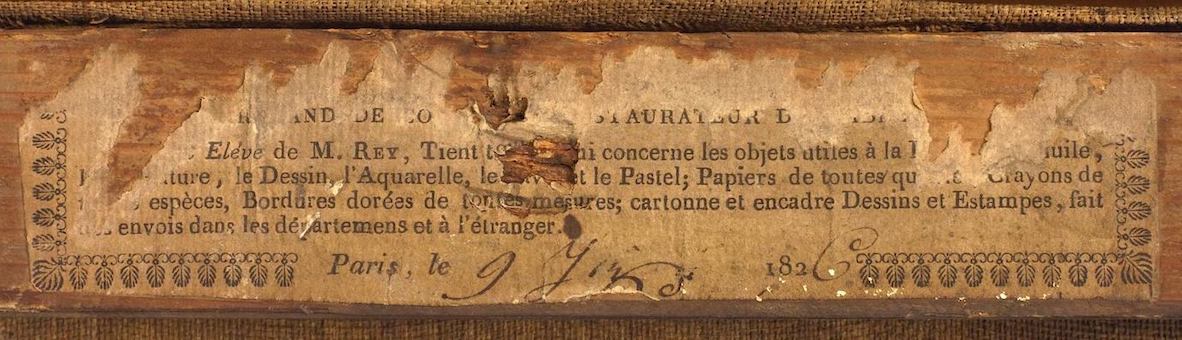 DE STAURATEUR
Eléve de M. REY, Tient concerne les objets utiles à la
le Dessin, l'Aquarelle, et le Pastel; Papiers de toutes Crayons de
espèces, Bordures dorées de toutes mesures; cartonne et encadre Dessins et Estampes, fait
envois dans les départemens et à l'étranger.
Paris, le 9 1826